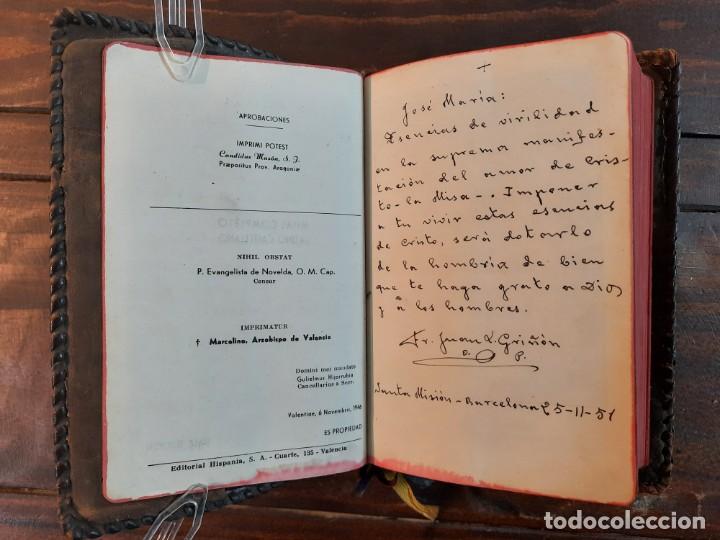 APROBACIONES
IMPRIMI POTEST
Candidus Mazón, S. J.
Præpositus Prov. Aragoniæ
NIHIL OBSTAT
P. Evangelista de Novelda, O. M. Cap.
Censor
IMPRIMATUR
† Marcelino, Arzobispo de Valencia
Domini mei mandato
Gulielmus Hijarrubia
Cancellarius a Secr.
Valentiae, 6 Novembre, 1946
ES PROPIEDAD
Editorial Hispania, S. A. - Cuarte, 135 - Valencia
+
José María:
Esencias de virilidad
en la suprema manifes-
tación del amor de Cris-
to - la Misa -. Imponer
a tu vivir estas esencias
de Cristo, será dotarlo
de la hombría de bien
que te haga grato a Dios
y a los hombres.
Fr. Juan L. Griñón
O. P.
Santa Misión - Barcelona 25-11-51
todocoleccion
todocoleccion.net